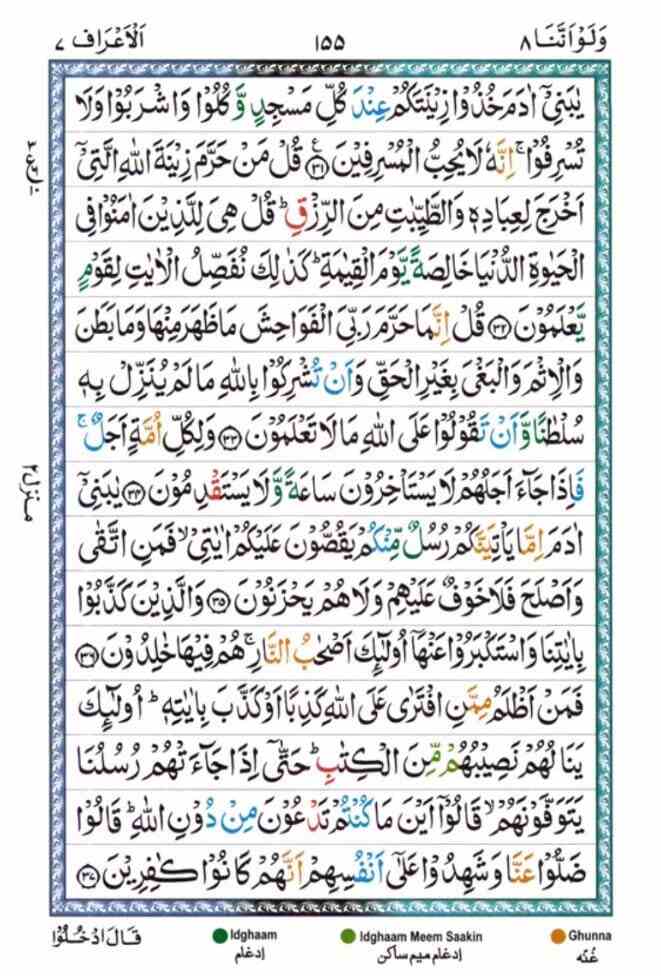 وَلَوْ اَنَّنَا ٨
١٥٥
اَلْاَعْرَاف ٧
يٰبَنِيْۤ اٰدَمَ خُذُوْا زِيْنَتَكُمْ عِنْدَ كُلِّ مَسْجِدٍ وَّ كُلُوْا وَاشْرَبُوْا وَلَا
تُسْرِفُوْا ۚ اِنَّهٗ لَا يُحِبُّ الْمُسْرِفِيْنَ ﴿٣١﴾ قُلْ مَنْ حَرَّمَ زِيْنَةَ اللّٰهِ الَّتِيْۤ
اَخْرَجَ لِعِبَادِهٖ وَالطَّيِّبٰتِ مِنَ الرِّزْقِ ؕ قُلْ هِيَ لِلَّذِيْنَ اٰمَنُوْا فِي
الْحَيٰوةِ الدُّنْيَا خَالِصَةً يَّوْمَ الْقِيٰمَةِ ؕ كَذٰلِكَ نُفَصِّلُ الْاٰيٰتِ لِقَوْمٍ
يَّعْلَمُوْنَ ﴿٣٢﴾ قُلْ اِنَّمَا حَرَّمَ رَبِّيَ الْفَوَاحِشَ مَا ظَهَرَ مِنْهَا وَمَا بَطَنَ
وَالْاِثْمَ وَالْبَغْيَ بِغَيْرِ الْحَقِّ وَاَنْ تُشْرِكُوْا بِاللّٰهِ مَا لَمْ يُنَزِّلْ بِهٖ
سُلْطٰنًا وَّاَنْ تَقُوْلُوْا عَلَى اللّٰهِ مَا لَا تَعْلَمُوْنَ ﴿٣٣﴾ وَلِكُلِّ اُمَّةٍ اَجَلٌ ۚ
فَاِذَا جَآءَ اَجَلُهُمْ لَا يَسْتَاْخِرُوْنَ سَاعَةً وَّلَا يَسْتَقْدِمُوْنَ ﴿٣٤﴾ يٰبَنِيْۤ
اٰدَمَ اِمَّا يَاْتِيَنَّكُمْ رُسُلٌ مِّنْكُمْ يَقُصُّوْنَ عَلَيْكُمْ اٰيٰتِيْ ۙ فَمَنِ اتَّقٰى
وَاَصْلَحَ فَلَا خَوْفٌ عَلَيْهِمْ وَلَا هُمْ يَحْزَنُوْنَ ﴿٣٥﴾ وَالَّذِيْنَ كَذَّبُوْا
بِاٰيٰتِنَا وَاسْتَكْبَرُوْا عَنْهَاۤ اُولٰٓئِكَ اَصْحٰبُ النَّارِ ۚ هُمْ فِيْهَا خٰلِدُوْنَ ﴿٣٦﴾
فَمَنْ اَظْلَمُ مِمَّنِ افْتَرٰى عَلَى اللّٰهِ كَذِبًا اَوْ كَذَّبَ بِاٰيٰتِهٖ ؕ اُولٰٓئِكَ
يَنَالُهُمْ نَصِيْبُهُمْ مِّنَ الْكِتٰبِ ؕ حَتّٰۤى اِذَا جَآءَتْهُمْ رُسُلُنَا
يَتَوَفَّوْنَهُمْ ۙ قَالُوْۤا اَيْنَ مَا كُنْتُمْ تَدْعُوْنَ مِنْ دُوْنِ اللّٰهِ ؕ قَالُوْا
ضَلُّوْا عَنَّا وَشَهِدُوْا عَلٰۤى اَنْفُسِهِمْ اَنَّهُمْ كَانُوْا كٰفِرِيْنَ ﴿٣٧﴾
منزل ٢
قَالَ ادْخُلُوْا
Idghaam
ادغام
Idghaam Meem Saakin
ادغام میم ساکن
Ghunna
غُنّه